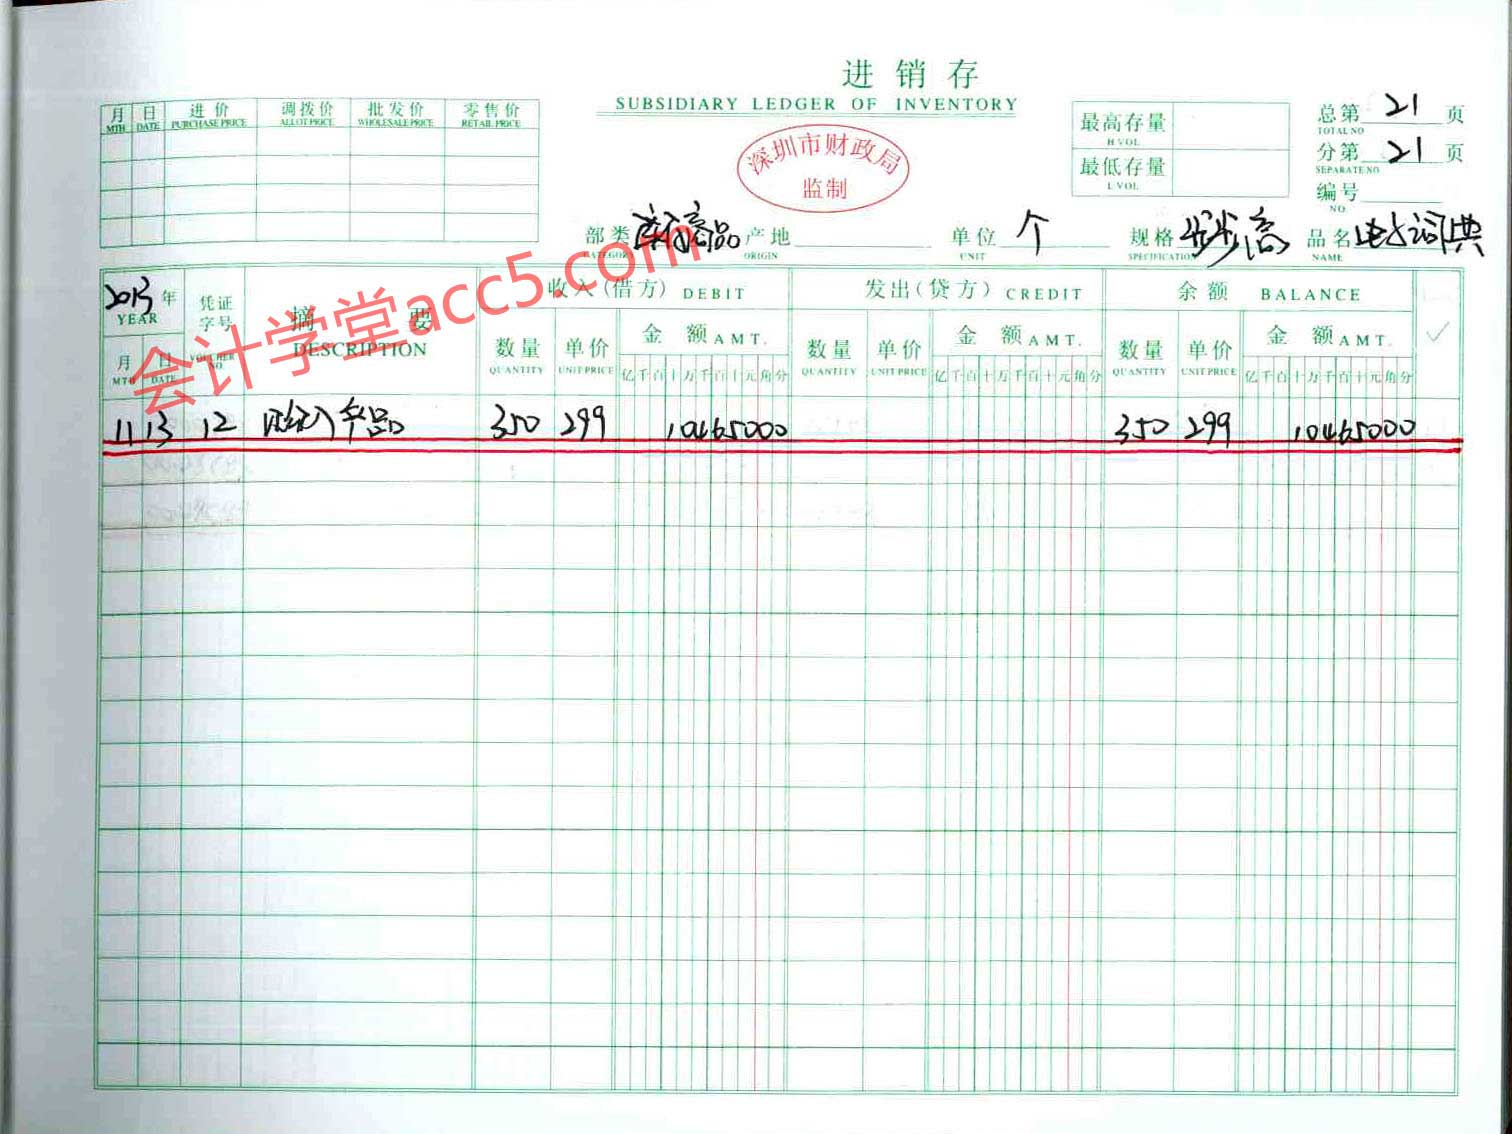 进销存
SUBSIDIARY LEDGER OF INVENTORY
月 日 进价 调拨价 批发价 零售价
MTH DATE PURCHASE PRICE ALLOT PRICE WHOLESALE PRICE RETAIL PRICE
深圳市财政局
监制
最高存量
H VOL
最低存量
L VOL
总第 21 页
TOTAL NO
分第 21 页
SEPARATE NO
编号
NO
部类 库存商品 产地 单位 个 规格 步步高 品名 电子词典
CATEGORY ORIGIN UNIT SPECIFICATION NAME
2013年 凭证 摘要 收入(借方) DEBIT 发出(贷方) CREDIT 余额 BALANCE
YEAR 字号 DESCRIPTION 数量 单价 金额 AMT. 数量 单价 金额 AMT. 数量 单价 金额 AMT.
月 日 VOUCHER QUANTITY UNIT PRICE 亿千百十万千百十元角分 QUANTITY UNIT PRICE 亿千百十万千百十元角分 QUANTITY UNIT PRICE 亿千百十万千百十元角分
MTH DATE NO.
11 13 12 购入 350 299 10465000 350 299 10465000
会计学堂acc5.com